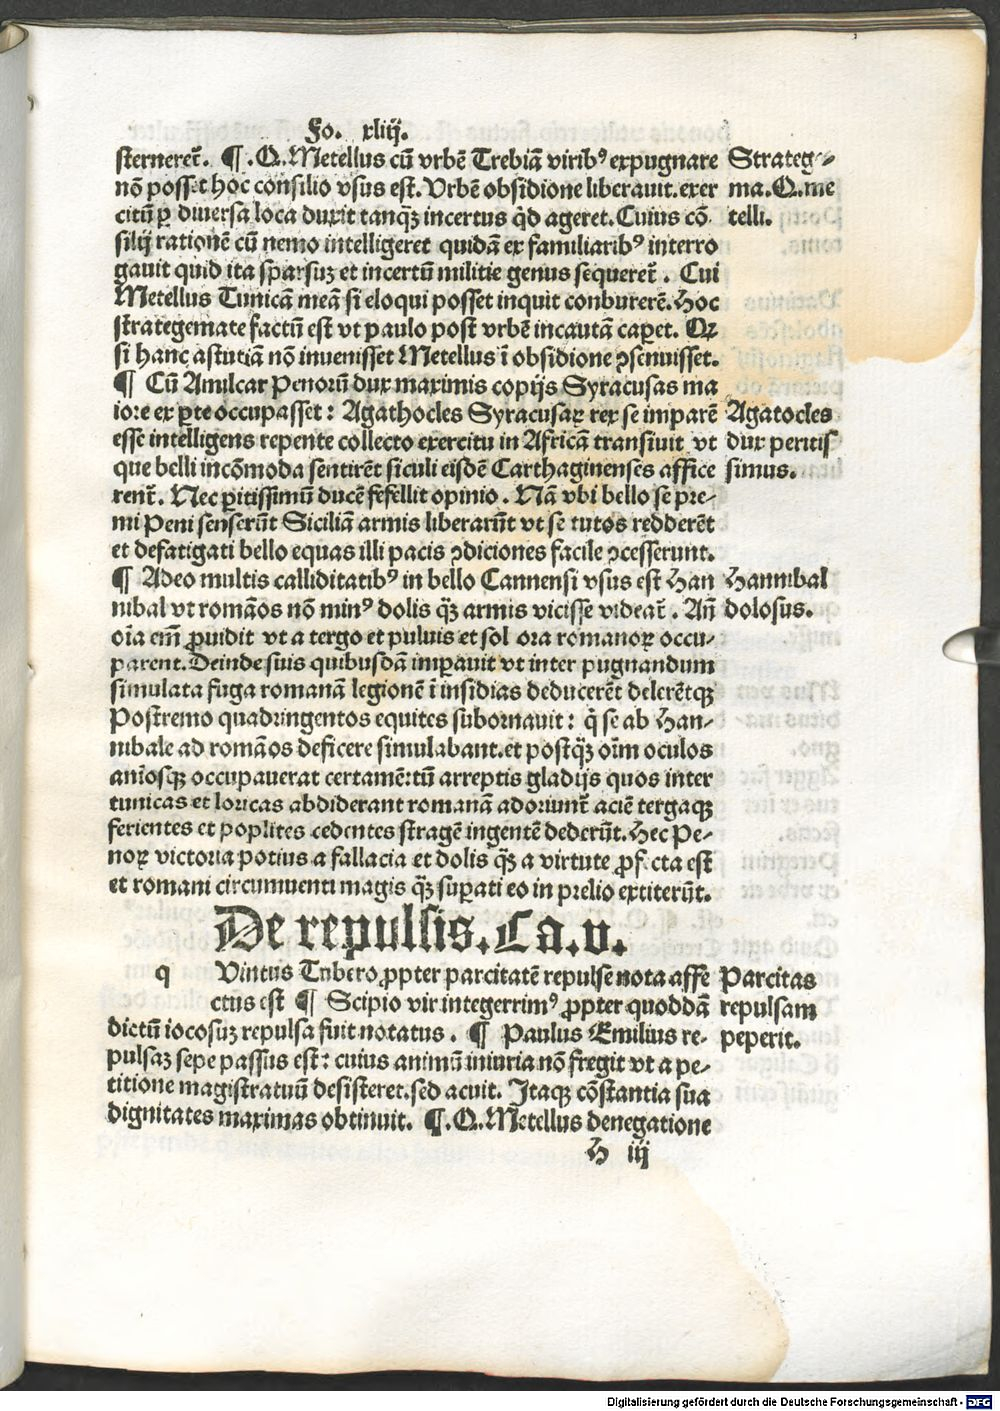 Fo. xliij.
sternereť. ¶ .Q. Metellus cū vrbē Trebiā virib⁹ expugnare
nō posset hoc consilio vsus est. Vrbē obsidione liberauit. exer
citū ꝑ diuersa loca duxit tanqꝫ incertus qd̄ ageret. Cuius cō
silij rationē cū nemo intelligeret quidā ex familiarib⁹ interro
gauit quid ita sparsuꝫ et incertū militie genus sequereť. Cui
Metellus Tunicā meā si eloqui posset inquit conburerē. Hoc
strategemate factū est vt paulo post vrbē incautā caꝑet. Qꝫ
si hanc astutiā nō inuenisset Metellus ī obsidione ꝯsenuisset.
¶ Cū Amilcar Penorū dux maximis copijs Syracusas ma
iore ex ꝑte occupasset: Agathocles Syracusaꝝ rex se imparē
esse intelligens repente collecto exercitu in Africā transiuit vt
que belli incōmoda sentirēt siculi eisdē Carthaginenses affice
renť. Nec ꝑitissimū ducē fefellit opinio. Nā vbi bello se pre-
mi Peni senserūt Siciliā armis liberarūt vt se tutos redderēt
et defatigati bello equas illi pacis ꝯdiciones facile ꝯcesserunt.
¶ Adeo multis calliditatib⁹ in bello Cannensi vsus est Han
nibal vt romāos nō min⁹ dolis qꝫ̄ armis vicisse videať. Añ
oīa em̄ ꝓuidit vt a tergo et puluis et sol ora romanoꝝ occu-
parent. Deinde suis quibusdā imꝑauit vt inter pugnandum
simulata fuga romanā legionē ī insidias deducerēt delerētqꝫ
Postremo quadringentos equites subornauit: q̇ se ab Han-
nibale ad romāos deficere simulabant. et postqꝫ̄ oīm oculos
aīosqꝫ occupauerat certamē: tū arreptis gladijs quos inter
tunicas et loricas abdiderant romanā adoriunť aciē tergaqꝫ
ferientes et poplites cedentes stragē ingentē dederūt. Hec Pe-
noꝝ victoria potius a fallacia et dolis qꝫ̄ a virtute ꝓfecta est
et romani circumuenti magis qꝫ̄ suꝑati eo in prelio extiterūt.
De repulsis. Ca. v.
q Vintus Tubero ꝓpter parcitatē repulse nota affe
ctus est ¶ Scipio vir integerrim⁹ ꝓpter quoddā
dictū iocosuꝫ repulsa fuit notatus. ¶ Paulus Emilius re-
pulsaꝫ sepe passus est: cuius animū iniuria nō fregit vt a pe-
titione magistratuū desisteret. sed acuit. Itaqꝫ cōstantia sua
dignitates maximas obtinuit. ¶ .Q. Metellus denegatione
H iij
Strateg-
ma. Q. me
telli.
Agatocles
dux peritis
simus.
Hannibal
dolosus.
Parcitas
repulsam
peperit.
Digitalisierung gefördert durch die Deutsche Forschungsgemeinschaft - DFG